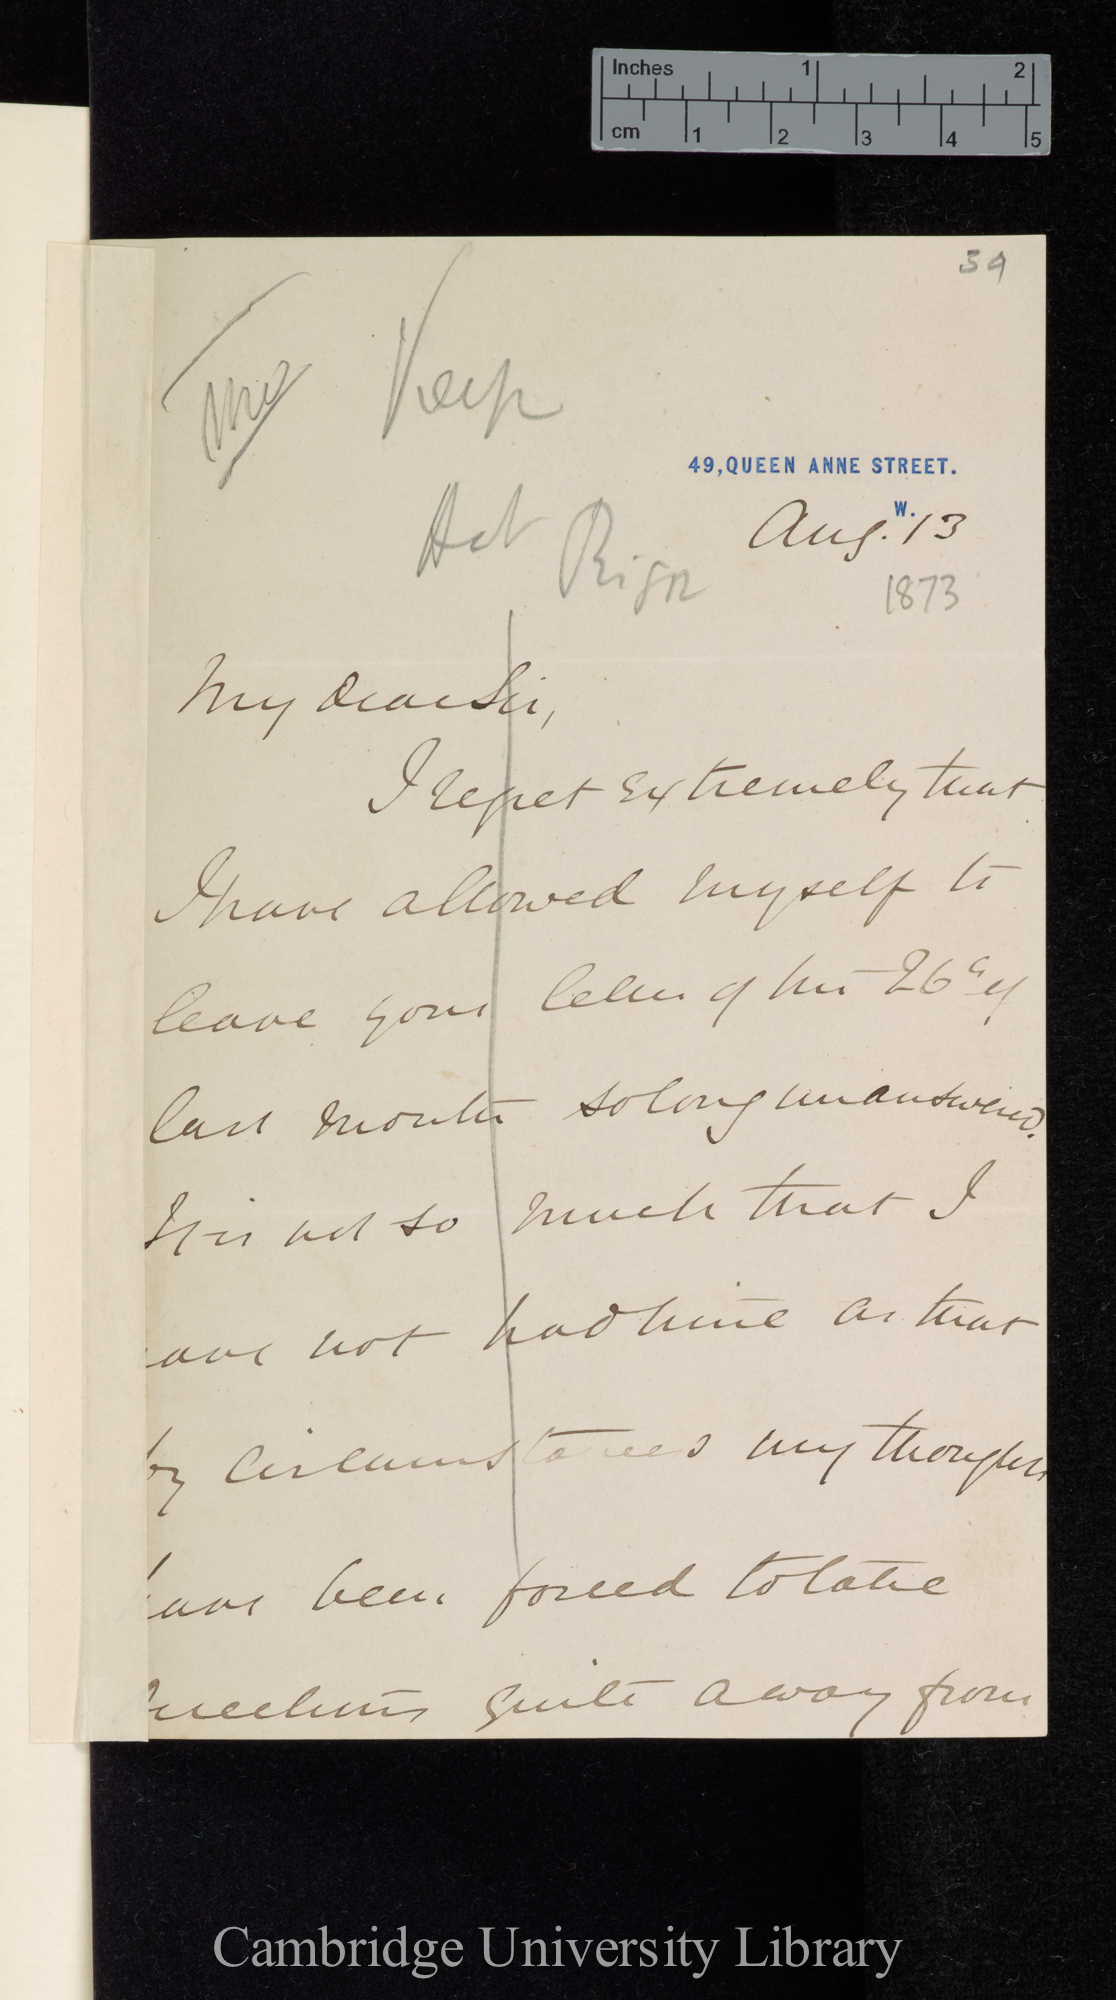 Inches 1 2
cm 1 2 3 4 5
34
Keep
49, QUEEN ANNE STREET.
W.
Aug. 13
1873
My dear Sir,
I regret extremely that
I have allowed myself to
leave your letter of the 26th of
last month so long unanswered.
It is not so much that I
have not had time as that
by circumstances my thoughts
have been forced to take
directions quite away from
Cambridge University Library